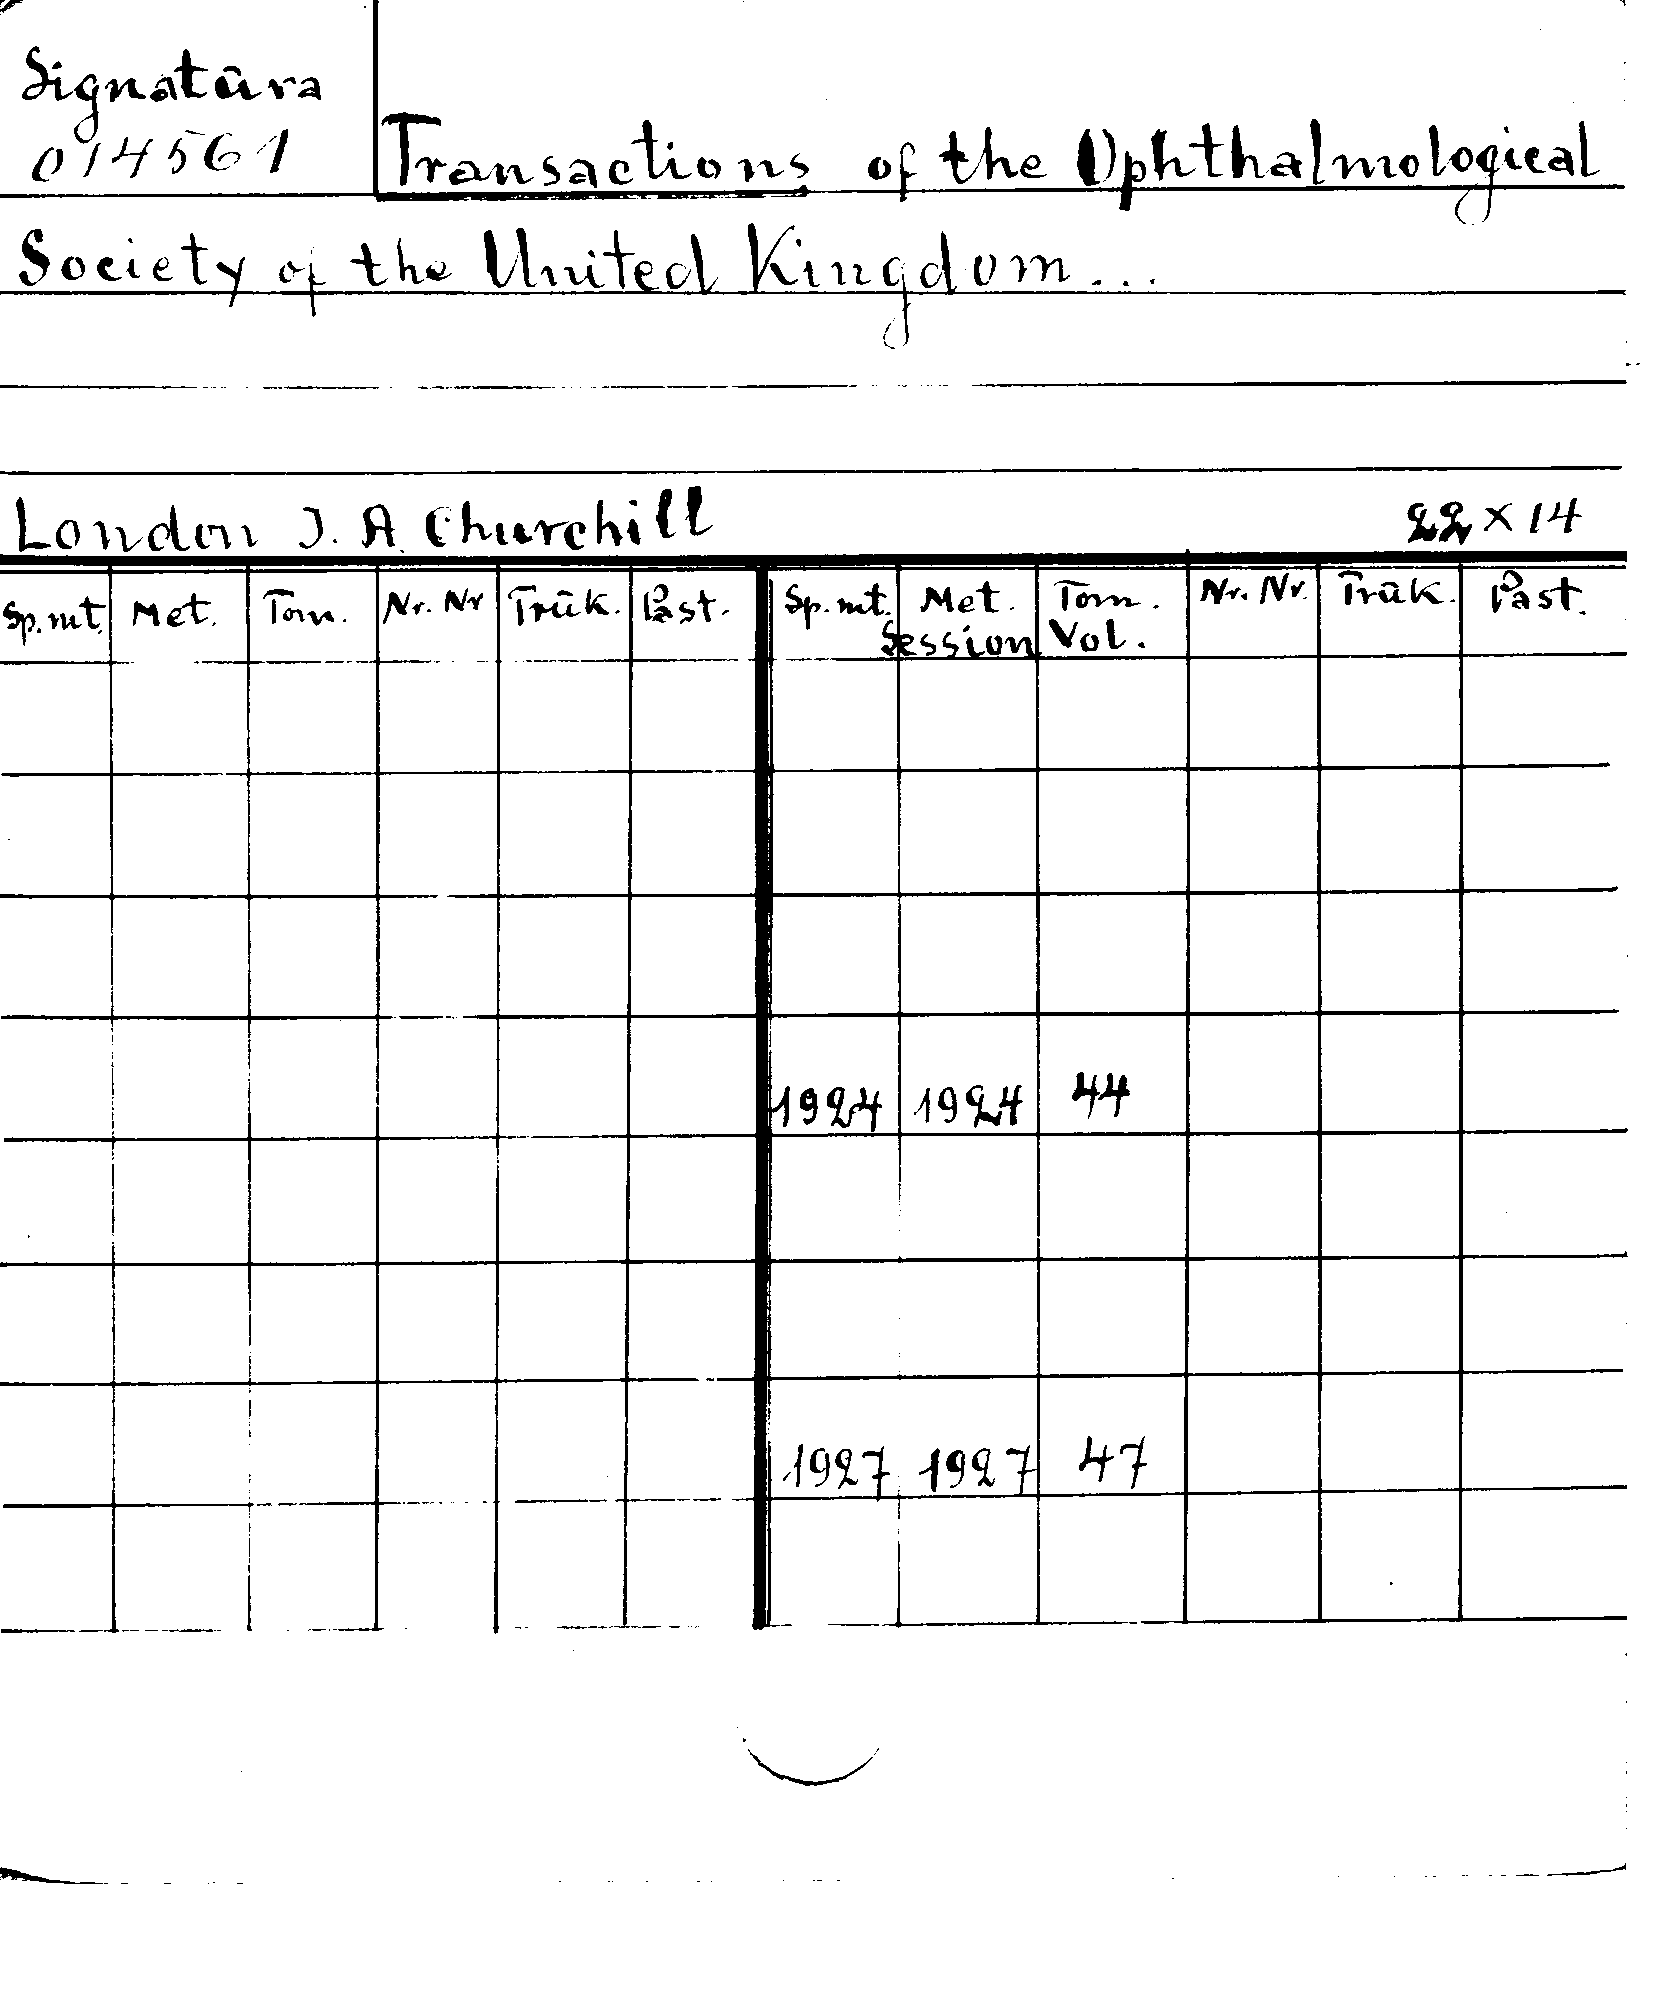 Signatūra
014561
Transactions of the Ophthalmological
Society of the United Kingdom...
London J. A. Churchill 22 x 14
Sp. mt. Met. Tom. Nr. Nr Trūk. Past. Sp. mt. Met. Tom. Nr. Nr. Trūk. Past.
Session Vol.
1924 1924 44
1927 1927 47